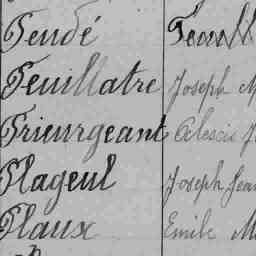 Fendé
Feuillatre Joseph M
Frieurgeant Alexis J
Flageul Joseph Jean
Flaux Emile M